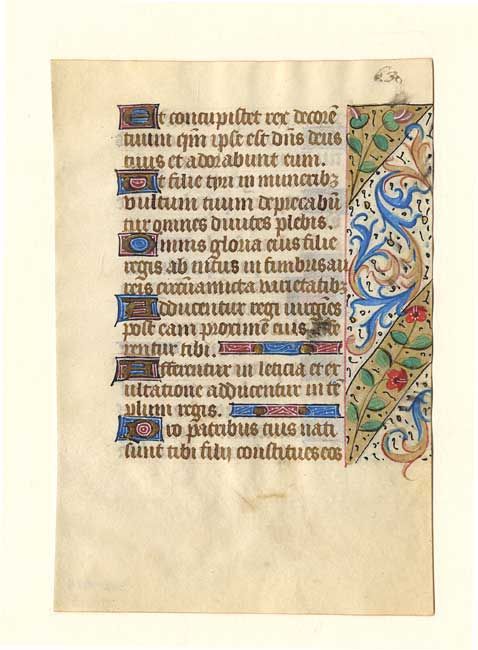 Et concupiscet rex decorē
tuum qm̄ ipse est dn̄s deus
tuus et adorabunt eum.
Et filie tyri in muneribꝫ
vultum tuum deprecabū
tur omnes diuites plebis.
Omnis gloria eius filie
regis ab intus in fimbriis au
reis circūamicta varietatibꝫ
Adducentur regi uirgīes
post eam proxime eius
rentur tibi.
Afferentur in leticia et ex
ultatione adducentur in tē
plum regis.
Pro patribus tuis nati
sunt tibi filij constitues eos